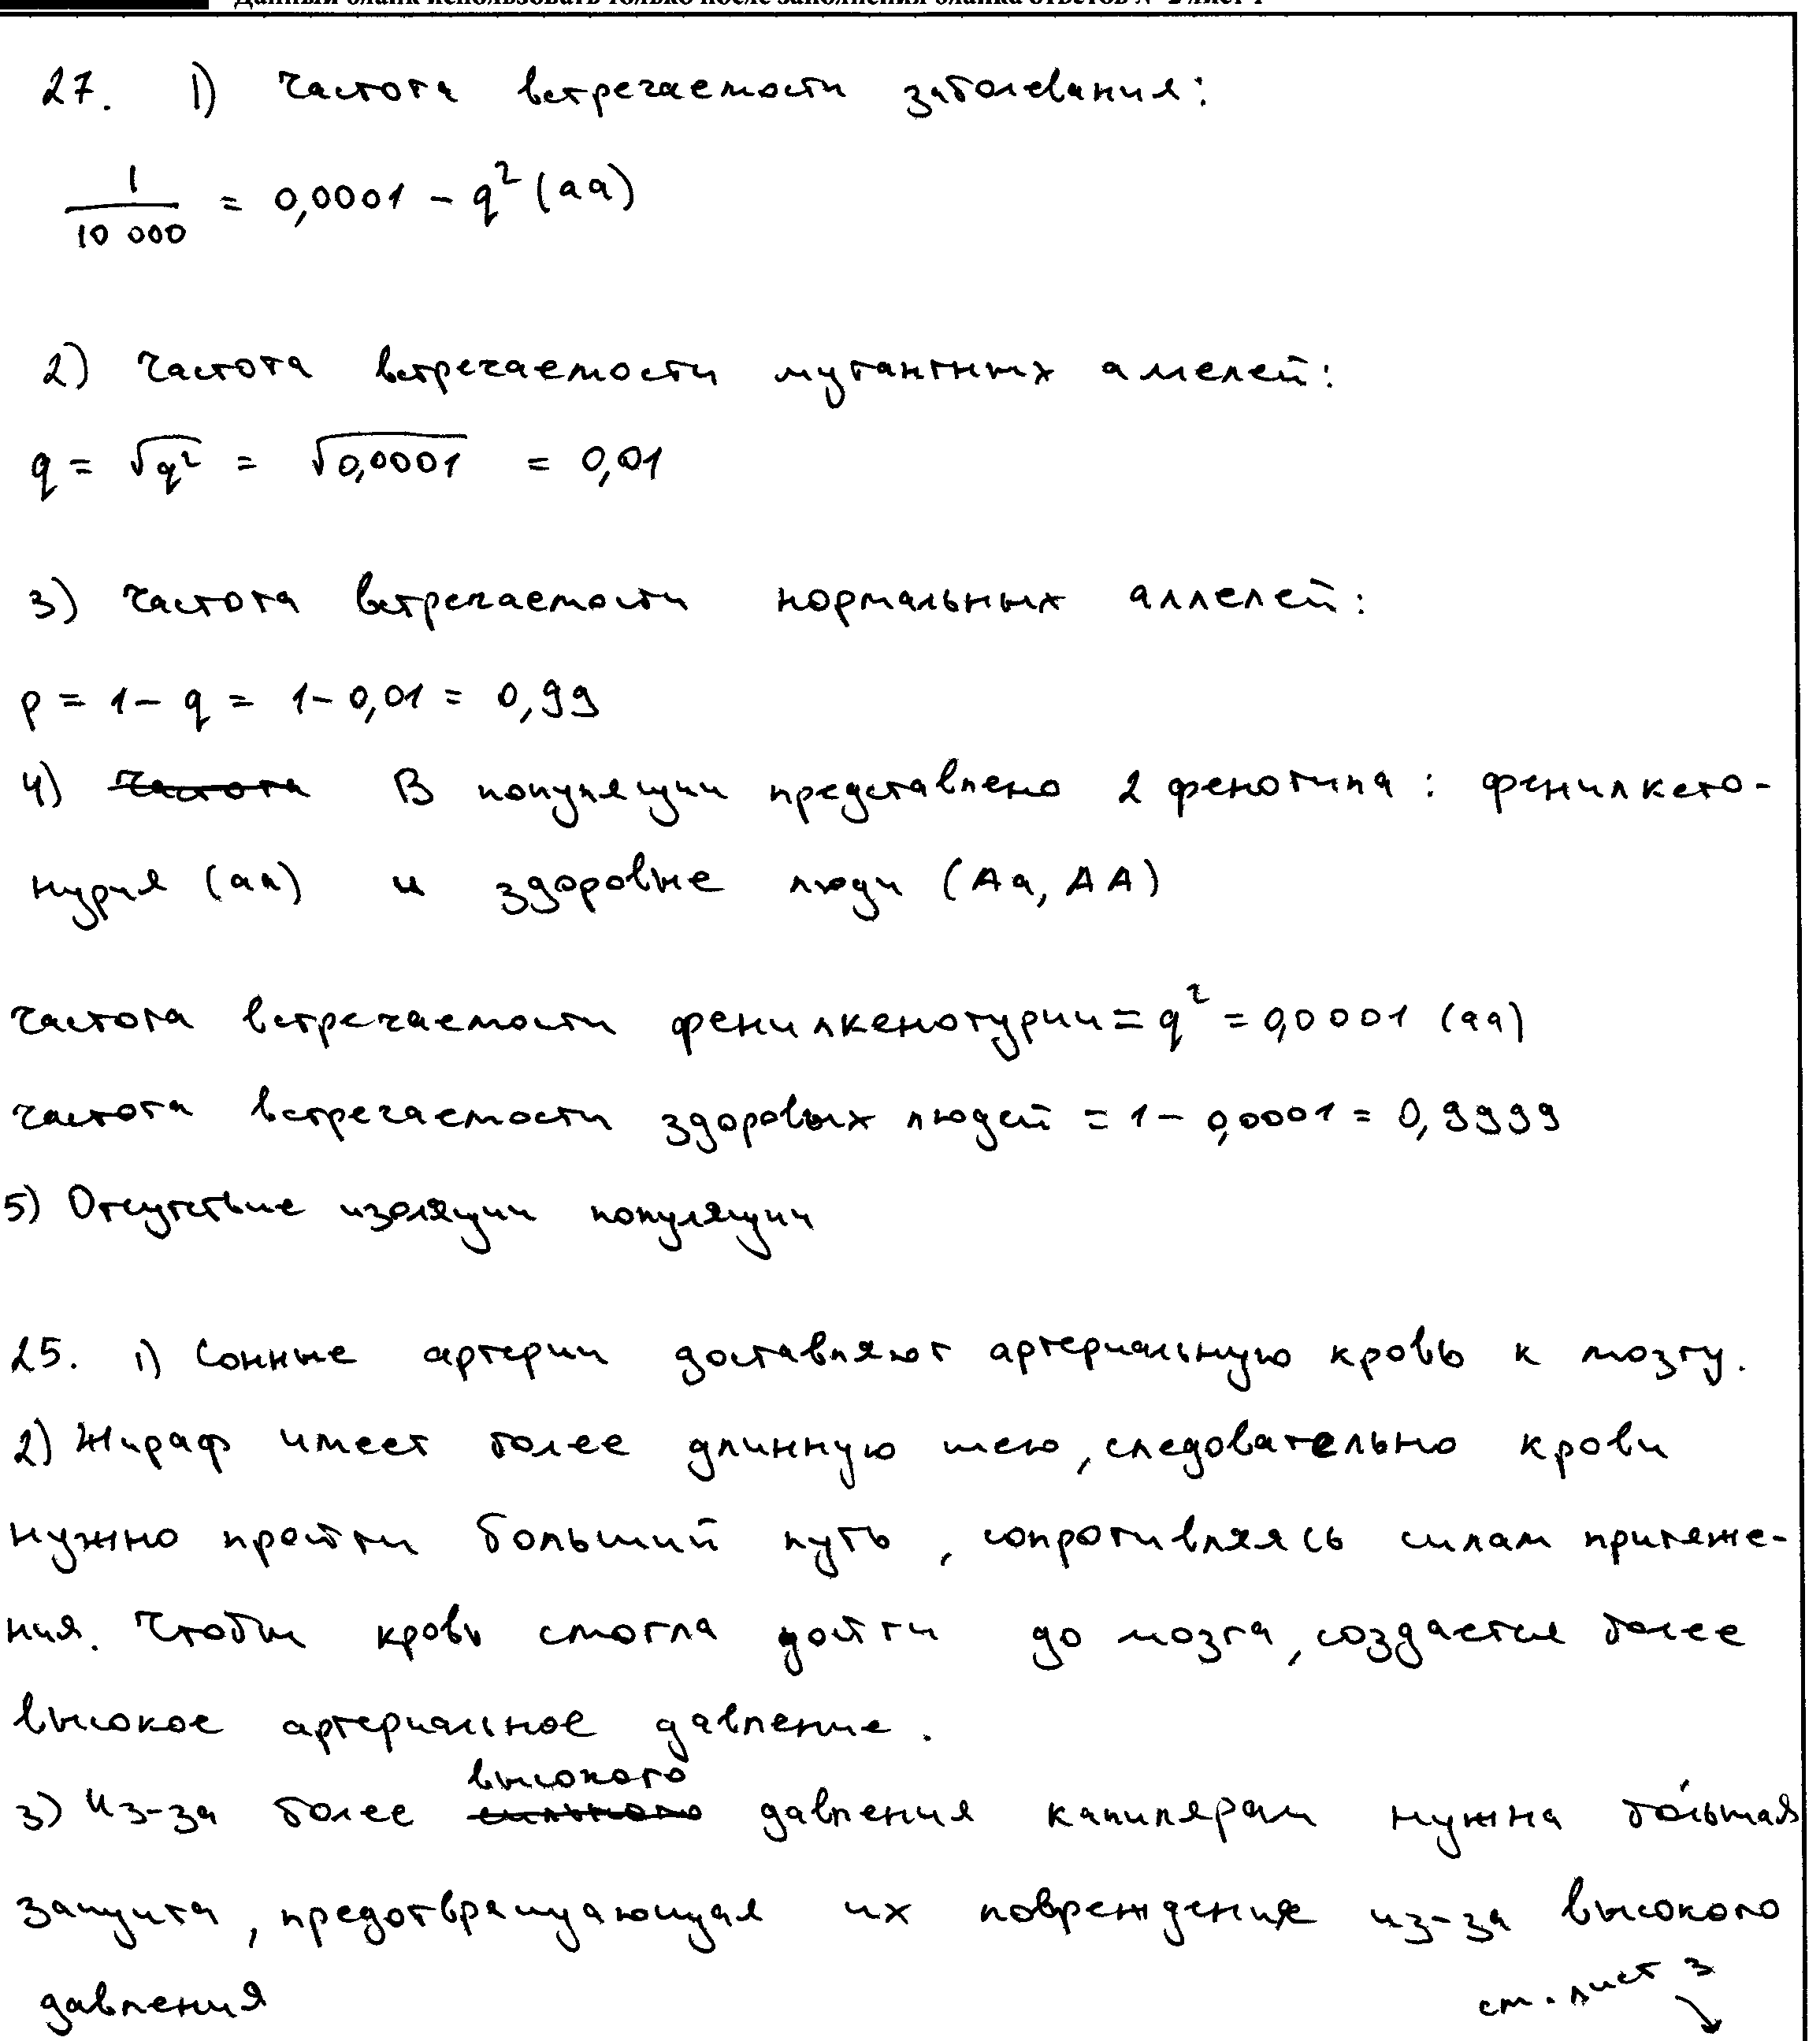 Данный бланк использовать только после заполнения бланка ответов № 2 лист 1
27. 1) Частота встречаемости заболевания:
1/10 000 = 0,0001 - q² (aa)
2) Частота встречаемости мутантных аллелей:
q = √q² = √0,0001 = 0,01
3) Частота встречаемости нормальных аллелей:
p = 1 - q = 1 - 0,01 = 0,99
4) Частота В популяции представлено 2 фенотипа: фенилкето-
нурия (aa) и здоровые люди (Aa, AA)
Частота встречаемости фенилкенотурии = q² = 0,0001 (aa)
Частота встречаемости здоровых людей = 1 - 0,0001 = 0,9999
5) Отсутствие изоляции популяции
25. 1) Сонные артерии доставляют артериальную кровь к мозгу.
2) Жираф имеет более длинную шею, следовательно крови
нужно пройти больший путь, сопротивляясь силам притяже-
ния. Чтобы кровь смогла дойти до мозга, создается более
высокое артериальное давление.
высокого
3) Из-за более сильного давления капилярам нужна бо́льшая
защита, предотвращающая их повреждение из-за высокого
давления
см. лист 3